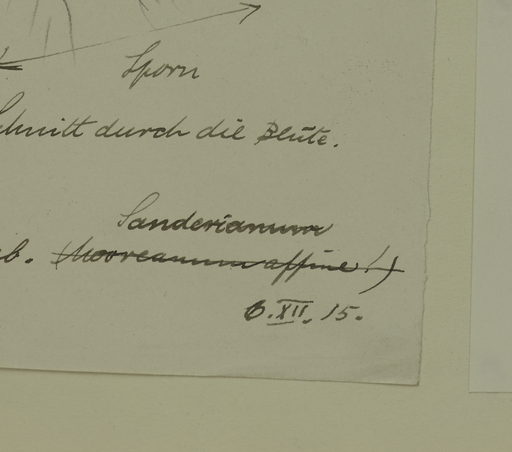 Sporn
Schnitt durch die Blüte.
Sanderianum
b. (Mooreanum affine!)
6.XII.15.